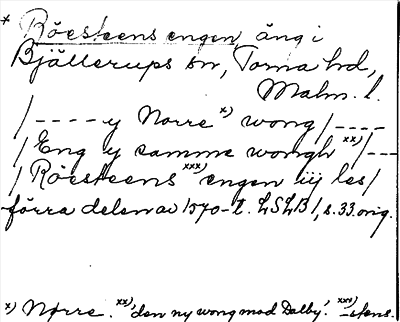 * Röesteens engen äng i
Bjällerups sn, Torna hd,
Malm. l.
/ - - - - y Norre x) wong / - - - -
/ Eng y samme wongh xx) / - - -
/ Röesteens xxx) engen iij les /
förra delen av 1570-t. LSLB 1, s. 33. orig.
x) Nørre. xx) 'den ny wong mod Dalby'. xxx) -stens.